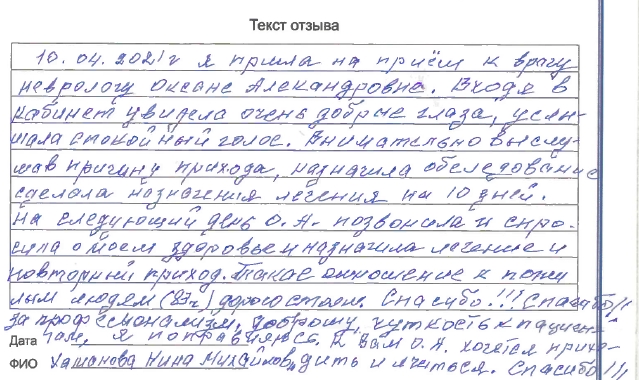 Текст отзыва
10.04.2021г я пришла на приём к врачу
неврологу Оксане Александровна. Входя в
кабинет увидела очень добрые глаза, услы-
шала спокойный голос. Внимательно выслу-
шав причину прихода, назначила обследование
сделола назначения лечения на 10 дней.
На следующий день О.А. позвонила и спро-
сила о моем здоровье и назначила лечение и
повторный приход. Такое отношение к пожи
лым людям (83г) дорого стоет. Спасибо!!! Спасибо!!
за профессионализм, доброту, чуткость к пациен-
Дата там, я поправляюсь. К Вам О.А. хочется прихо-
ФИО Нина Михайловна дить и лечиться. Спасибо!!!